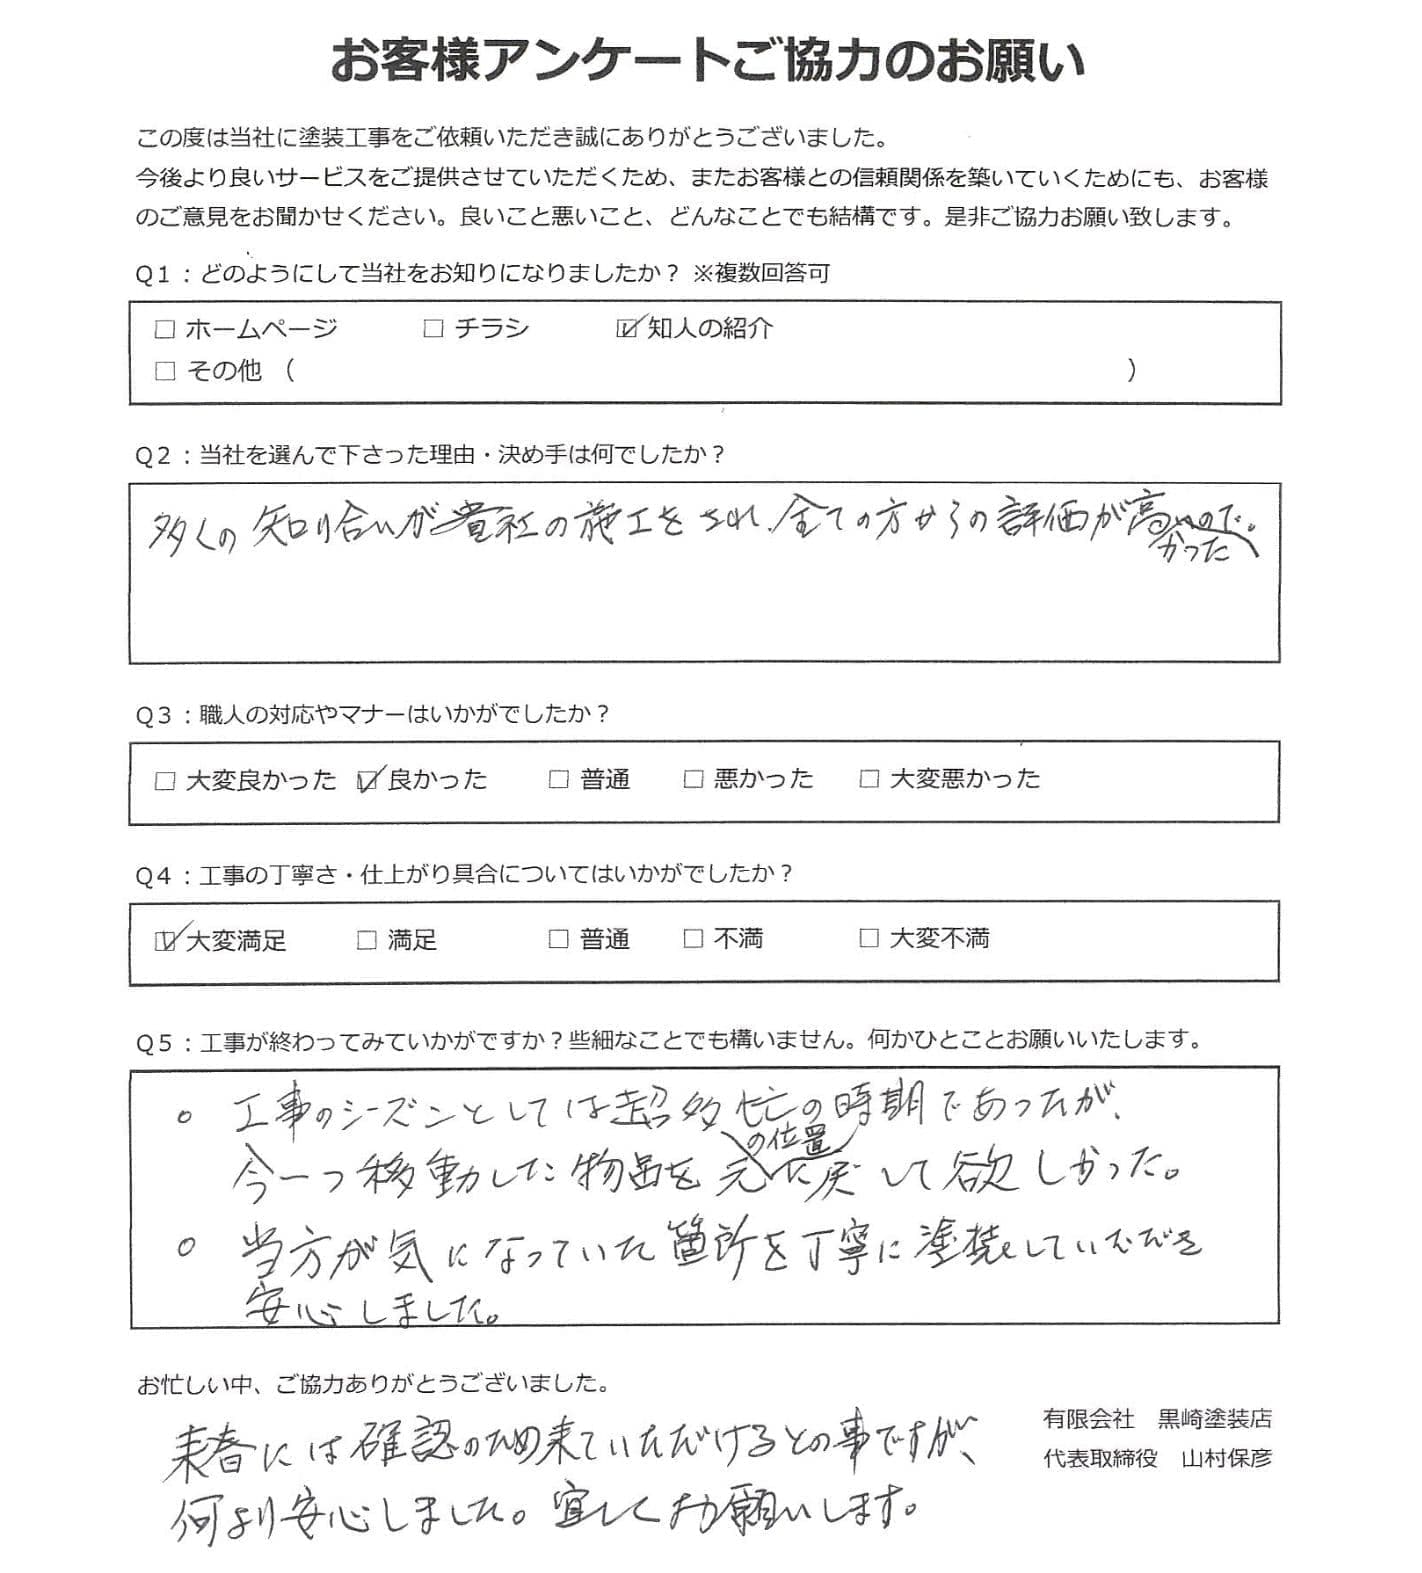 お客様アンケートご協力のお願い
この度は当社に塗装工事をご依頼いただき誠にありがとうございました。
今後より良いサービスをご提供させていただくため、またお客様との信頼関係を築いていくためにも、お客様
のご意見をお聞かせください。良いこと悪いこと、どんなことでも結構です。是非ご協力お願い致します。
Q1：どのようにして当社をお知りになりましたか？ ※複数回答可
□ ホームページ □ チラシ ☑ 知人の紹介
□ その他 （ ）
Q2：当社を選んで下さった理由・決め手は何でしたか？
多くの知り合いが貴社の施工をされ、全ての方からの評価が高いので。
かった
Q3：職人の対応やマナーはいかがでしたか？
□ 大変良かった ☑ 良かった □ 普通 □ 悪かった □ 大変悪かった
Q4：工事の丁寧さ・仕上がり具合についてはいかがでしたか？
☑ 大変満足 □ 満足 □ 普通 □ 不満 □ 大変不満
Q5：工事が終わってみていかがですか？些細なことでも構いません。何かひとことお願いいたします。
○ 工事のシーズンとしては超多忙の時期であったが、
の位置
今一つ移動した物品を元に戻して欲しかった。
○ 当方が気になっていた箇所を丁寧に塗装していただき
安心しました。
お忙しい中、ご協力ありがとうございました。
来春には確認のため来ていただけるとの事ですが、
何より安心しました。宜しくお願いします。
有限会社 黒崎塗装店
代表取締役 山村保彦